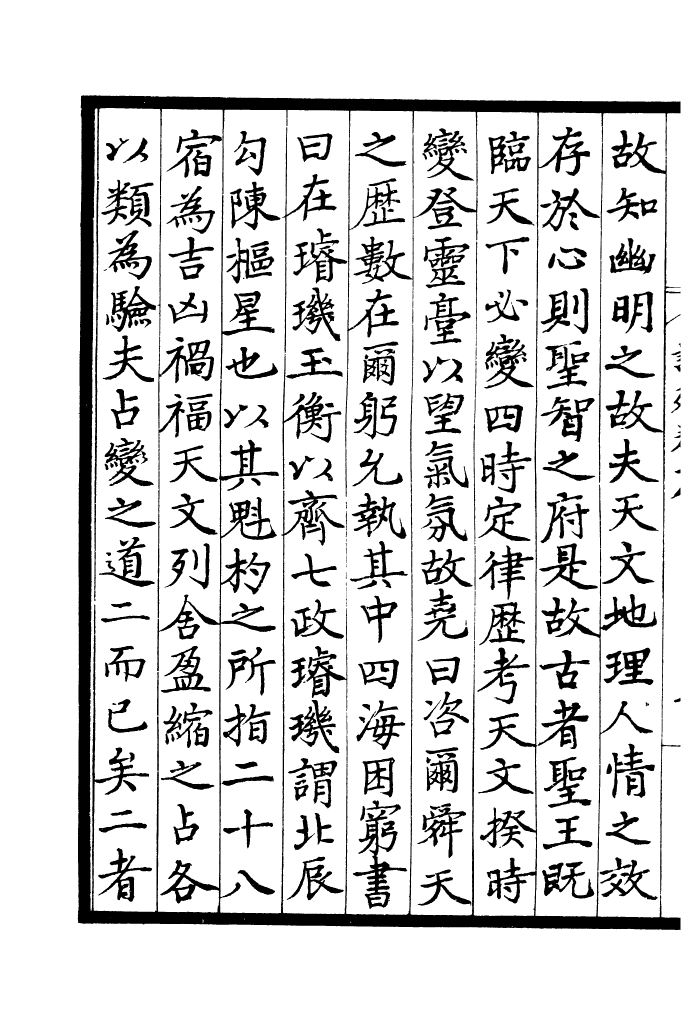 故知幽明之故夫天文地理人情之效
存於心則聖智之府是故古者聖王既
臨天下必變四時定律歴考天文揆時
變登靈臺以望氣氛故堯曰咨爾舜天
之歴數在爾躬允執其中四海困窮書
曰在璿璣玉衡以齊七政璿璣謂北辰
勾陳樞星也以其魁杓之所指二十八
宿為吉凶禍福天文列舍盈縮之占各
以類為驗夫占變之道二而已矣二者